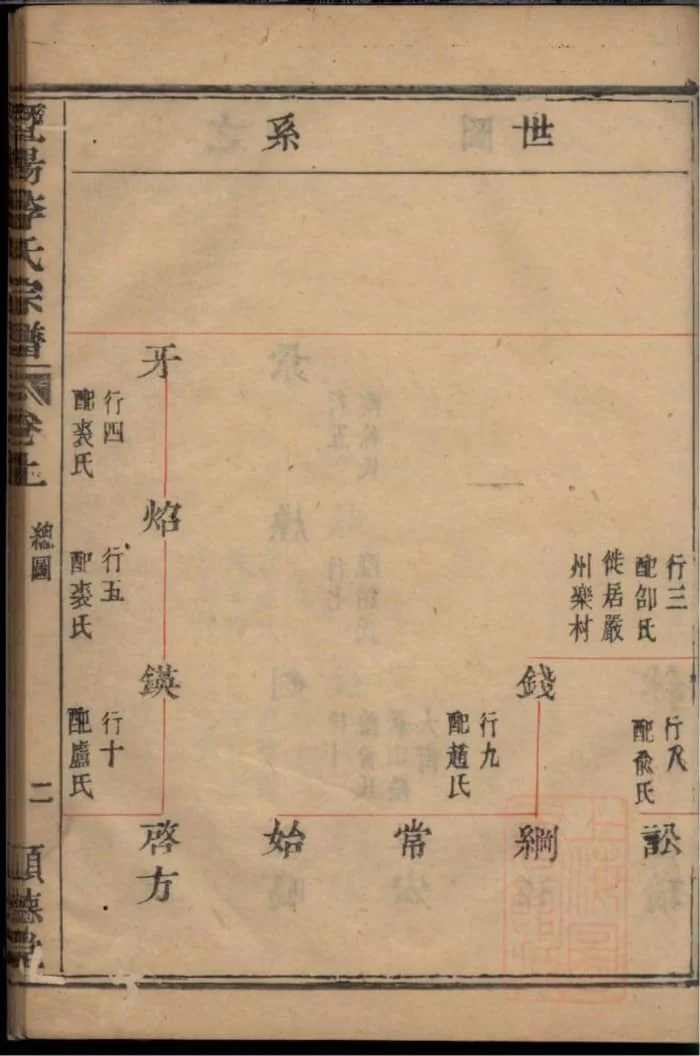 世系
行三
配邵氏
徙居嚴
州樂村
行八
配兪氏
訟
錢
行九
配趙氏
綱
常
始
牙
行四
配裘氏
焰
行五
配裘氏
鍈
行十
配盧氏
啓方
暨陽李氏宗譜
卷上
總圖
二